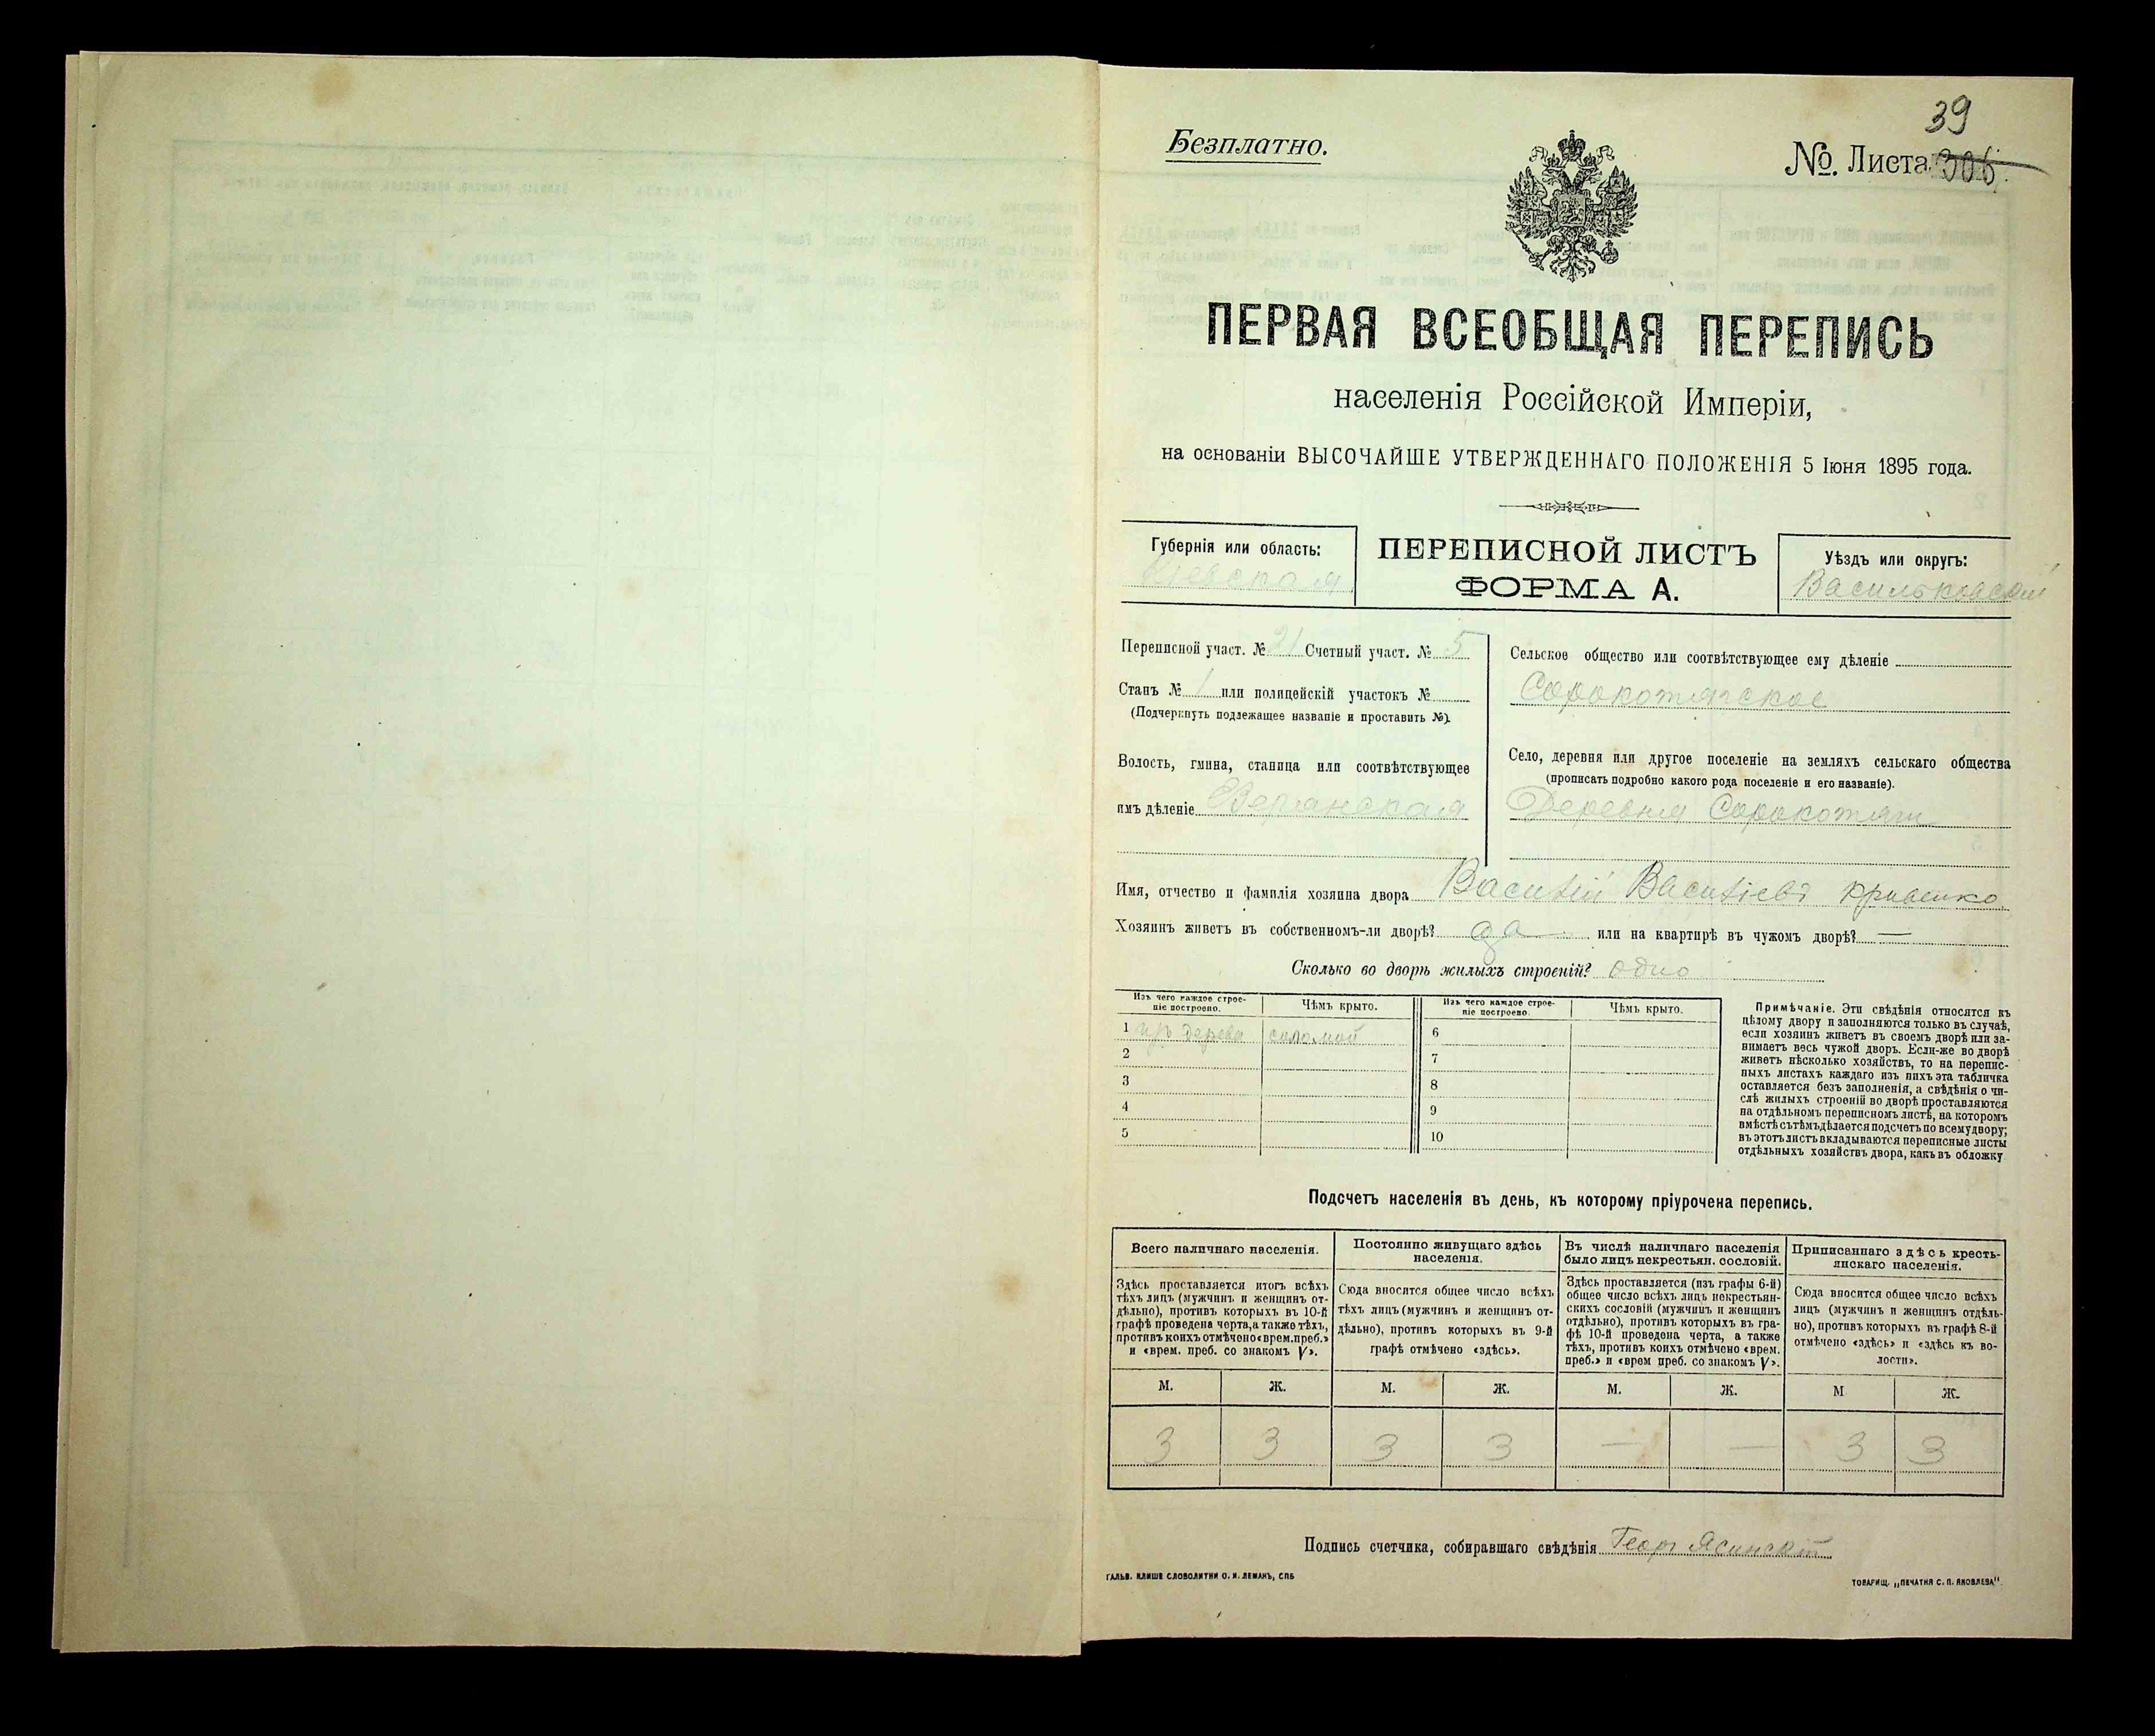 39
Безплатно.
№. Листа 306.
ПЕРВАЯ ВСЕОБЩАЯ ПЕРЕПИСЬ
населенія Россійской Имперіи,
на основаніи ВЫСОЧАЙШЕ УТВЕРЖДЕННАГО ПОЛОЖЕНІЯ 5 Іюня 1895 года.
Губернія или область:
Кіевская
ПЕРЕПИСНОЙ ЛИСТЪ
ФОРМА А.
Уѣздъ или округъ:
Васильковскій
Переписной участ. № 21 Счетный участ. № 5
Станъ № 1 или полицейскій участокъ №
(Подчеркнуть подлежащее названіе и проставить №).
Волость, гмина, станица или соотвѣтствующее
имъ дѣленіе
Сельское общество или соотвѣтствующее ему дѣленіе
Сорокотягское
Село, деревня или другое поселеніе на земляхъ сельскаго общества
(прописать подробно какого рода поселеніе и его названіе).
Деревня Сорокотяги
Имя, отчество и фамилія хозяина двора Василій Васильевъ Кривенко
Хозяинъ живетъ въ собственномъ-ли дворѣ? да или на квартирѣ въ чужомъ дворѣ? —
Сколько во дворѣ жилыхъ строеній? одно
Изъ чего каждое строе-
ніе построено.
Чѣмъ крыто.
Изъ чего каждое строе-
ніе построено.
Чѣмъ крыто.
1 изъ дерева соломой
2
3
4
5
6
7
8
9
10
Примѣчаніе. Эти свѣдѣнія относятся къ
цѣлому двору и заполняются только въ случаѣ,
если хозяинъ живетъ въ своемъ дворѣ или за-
нимаетъ весь чужой дворъ. Если-же во дворѣ
живетъ нѣсколько хозяйствъ, то на перепис-
ныхъ листахъ каждаго изъ нихъ эта табличка
оставляется безъ заполненія, а свѣдѣнія о чи-
слѣ жилыхъ строеній во дворѣ проставляются
на отдѣльномъ переписномъ листѣ, на которомъ
вмѣстѣ съ тѣмъ дѣлается подсчетъ по всему двору;
въ этотъ листъ вкладываются переписные листы
отдѣльныхъ хозяйствъ двора, какъ въ обложку
Подсчетъ населенія въ день, къ которому пріурочена перепись.
Всего наличнаго населенія.
Здѣсь проставляется итогъ всѣхъ
тѣхъ лицъ (мужчинъ и женщинъ от-
дѣльно), противъ которыхъ въ 10-й
графѣ проведена черта, а также тѣхъ,
противъ коихъ отмѣчено «врем. преб.»
и «врем. преб. со знакомъ V».
Постоянно живущаго здѣсь
населенія.
Сюда вносится общее число всѣхъ
тѣхъ лицъ (мужчинъ и женщинъ от-
дѣльно), противъ которыхъ въ 9-й
графѣ отмѣчено «здѣсь».
Въ числѣ наличнаго населенія
было лицъ некрестьян. сословій.
Здѣсь проставляется (изъ графы 6-й)
общее число всѣхъ лицъ некрестьян-
скихъ сословій (мужчинъ и женщинъ
отдѣльно), противъ которыхъ въ гра-
фѣ 10-й проведена черта, а также
тѣхъ, противъ коихъ отмѣчено «врем.
преб.» и «врем преб. со знакомъ V».
Приписаннаго здѣсь кресть-
янскаго населенія.
Сюда вносится общее число всѣхъ
лицъ (мужчинъ и женщинъ отдѣль-
но), противъ которыхъ въ графѣ 8-й
отмѣчено «здѣсь» и «здѣсь къ во-
лости».
М. Ж. М. Ж. М. Ж. М Ж.
3 3 3 3 — — 3 3
Подпись счетчика, собиравшаго свѣдѣнія Георг Ясинскій
ГАЛЬВ. КЛИШЕ СЛОВОЛИТНИ О. И. ЛЕМАНЪ, СПБ
ТОВАРИЩ. „ПЕЧАТНЯ С. П. ЯКОВЛЕВА".